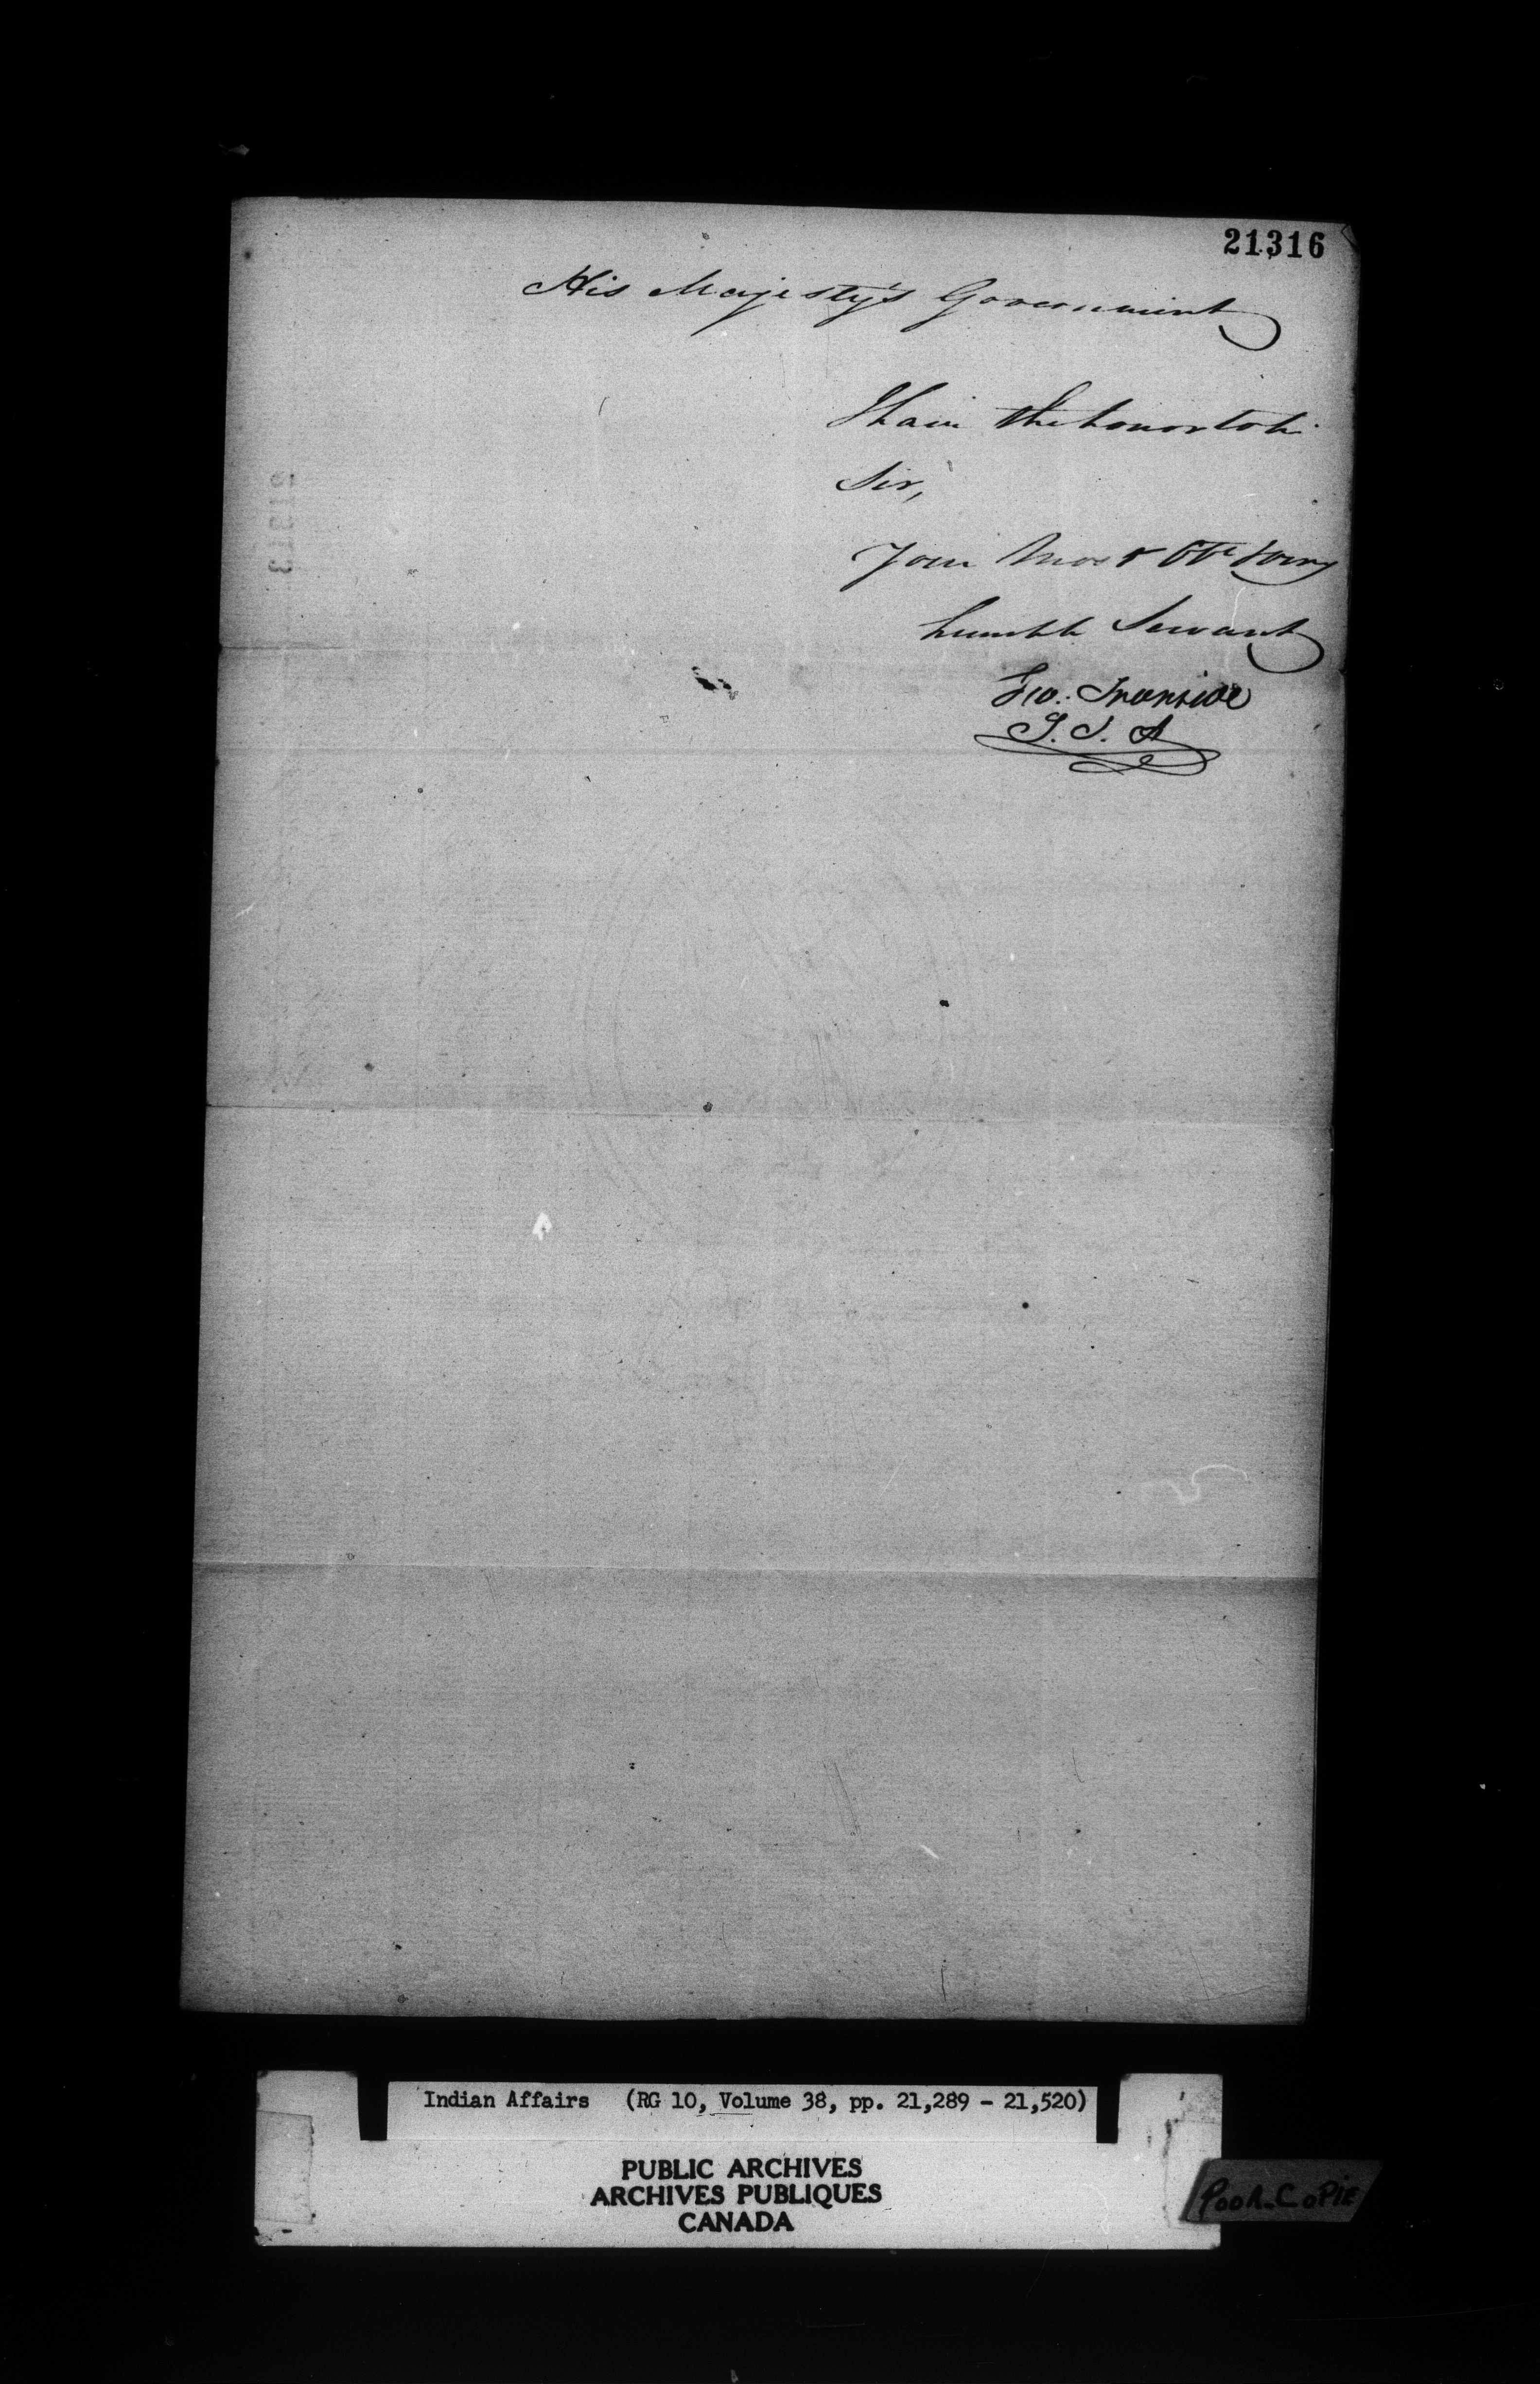 21316
His Majesty's Government
I have the honor to be
Sir,
Your Most Obt Very
humble Servant
Geo. Ironside
S. I. A
Indian Affairs (RG 10, Volume 38, pp. 21,289 - 21,520)
PUBLIC ARCHIVES
ARCHIVES PUBLIQUES
CANADA
POOR COPIE